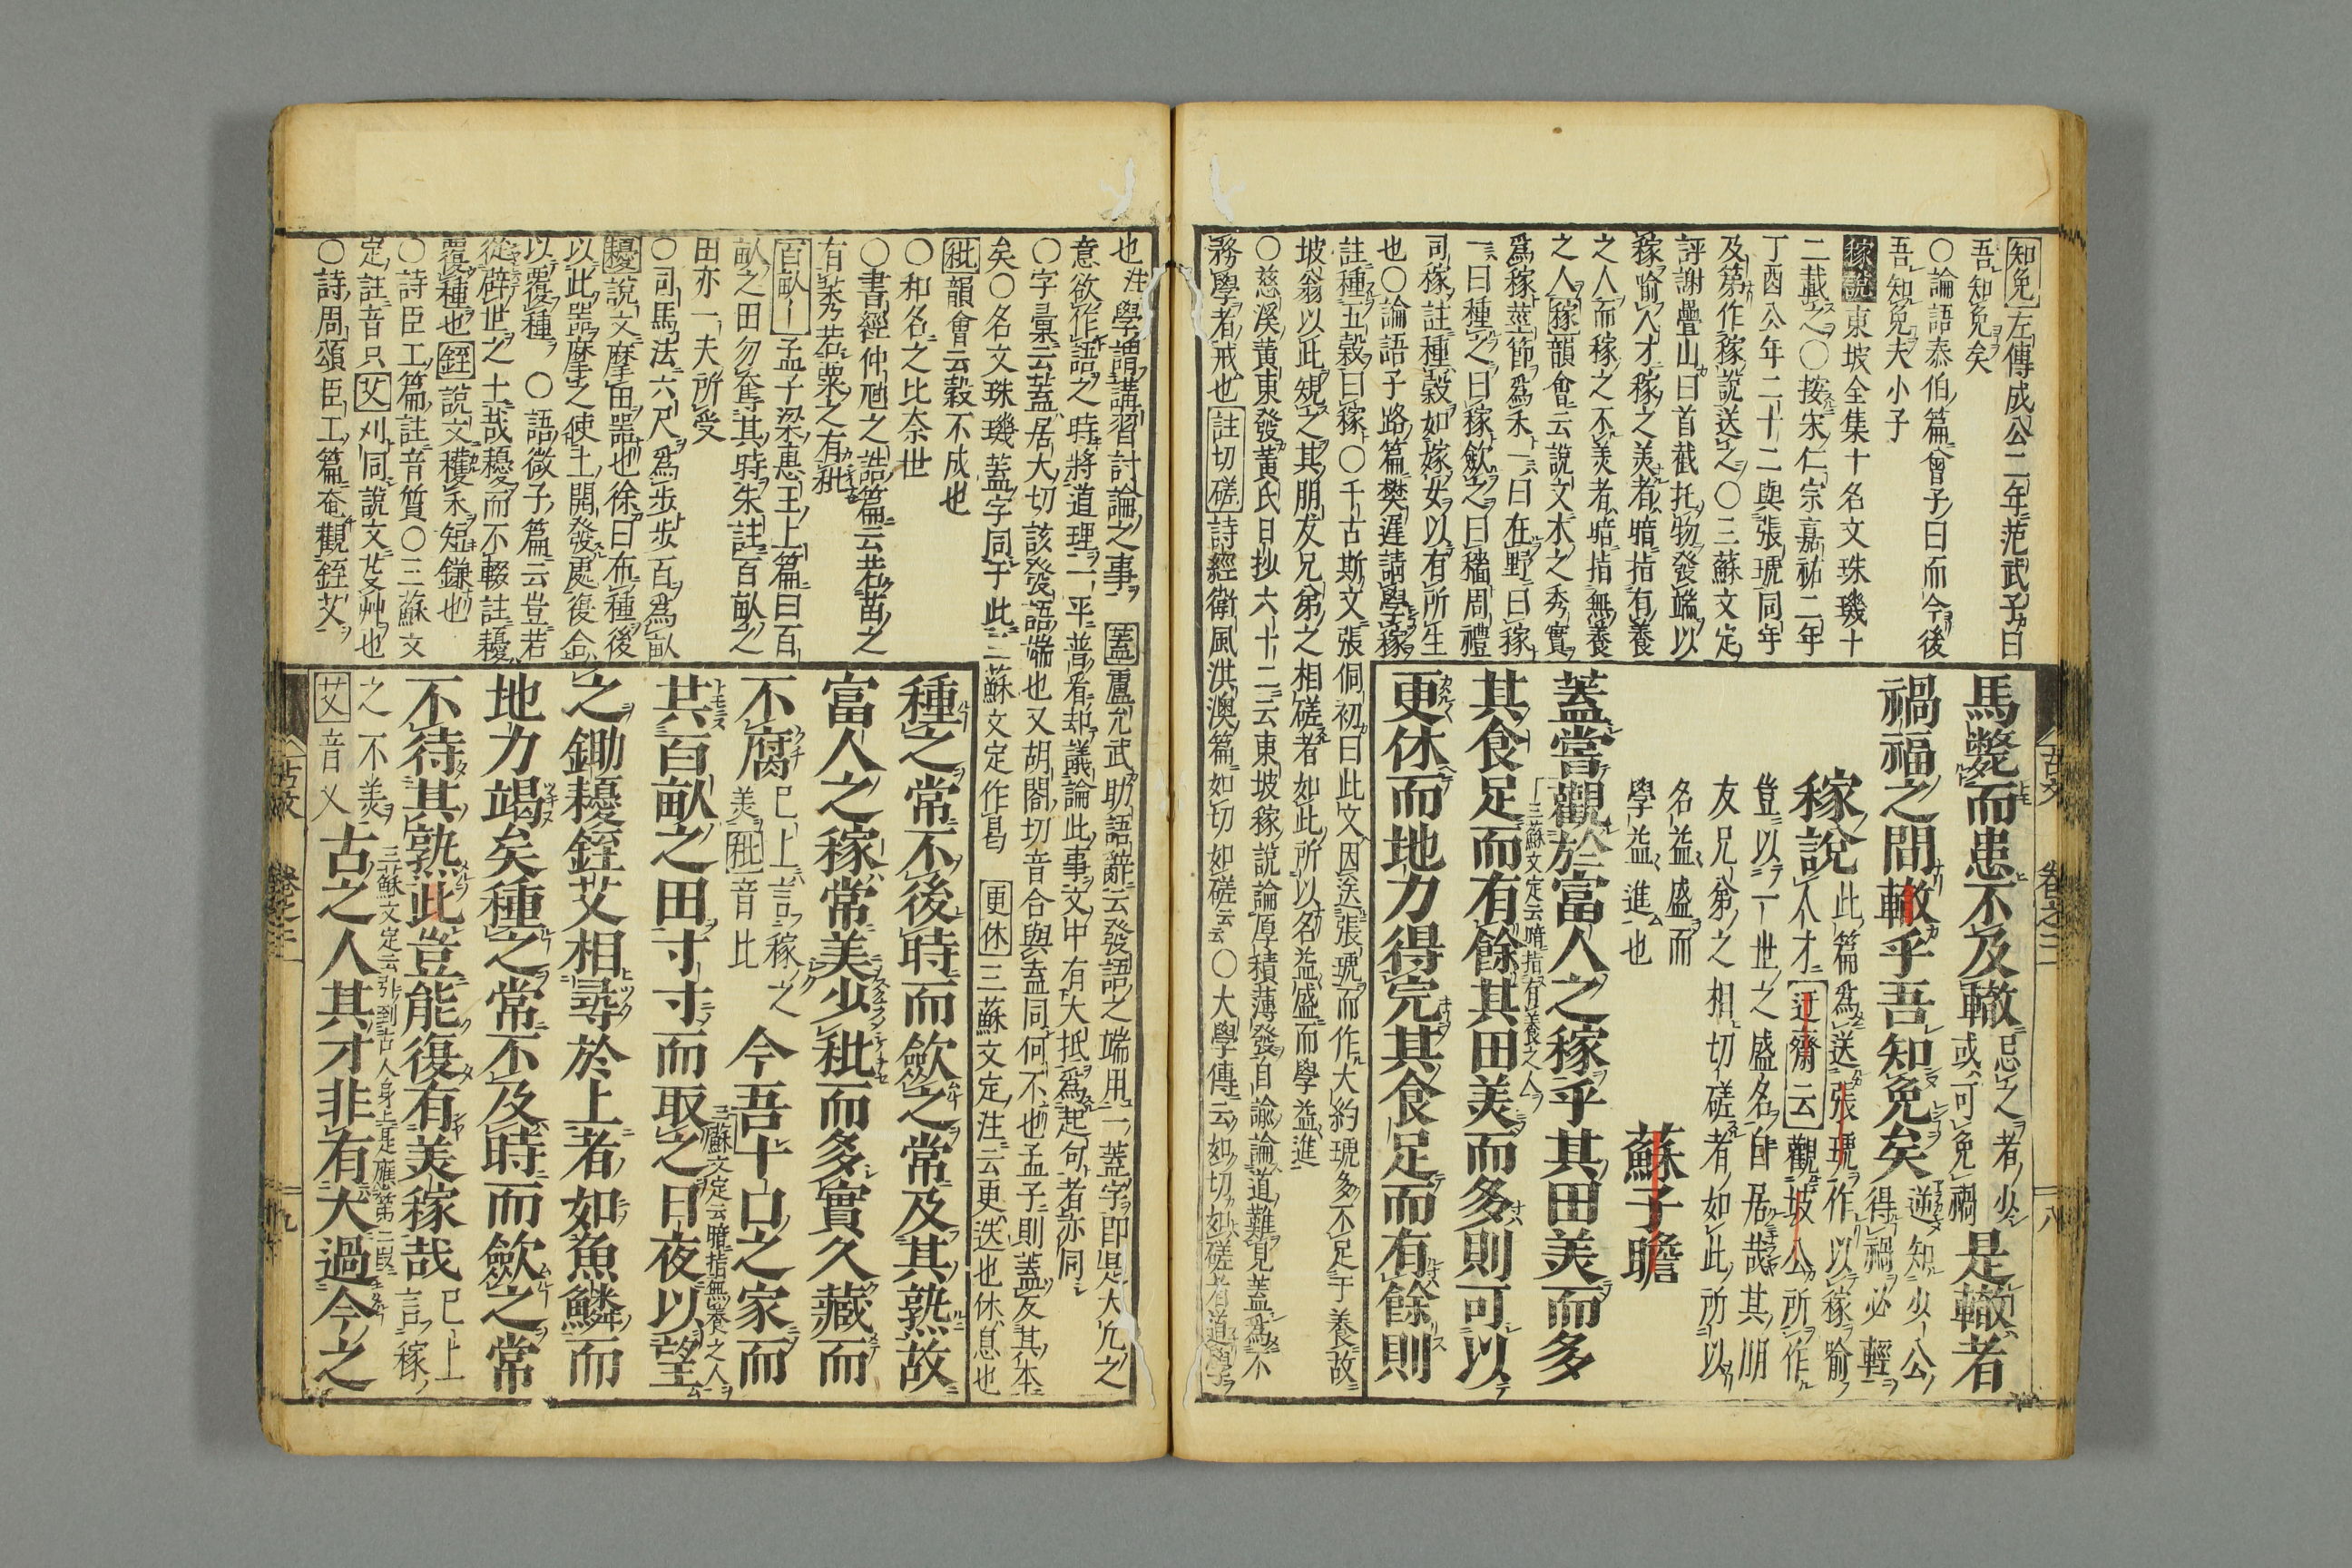 知免左傳成公二年范武子曰
吾知免矣
○論語泰伯篇曾子曰而今後
吾知免夫小子
稼說東坡全集十名文珠璣十
二載之○按宋仁宗嘉祐二年
丁酉公年二十二與張琥同年
及第作稼說送之○三蘇文定
評謝疊山曰首截托物發端以
稼喻人才稼之美者暗指有養
之人而稼之不美者暗指無養
之人稼韻會云說文木之秀實
爲稼莖節爲禾一曰在野曰稼
一曰種之曰稼斂之曰穡周禮
司稼註種穀如嫁女以有所生
也○論語子路篇樊遲請學稼
註種五穀曰稼○千古斯文張侗初曰此文因送張琥而作大約琥多不足于養故
坡翁以此規之其朋友兄弟之相磋者如此所以名益盛而學益進
○慈溪黃東發黃氏日抄六十二云東坡稼說論厚積薄發自諭論道難見蓋爲不
務學者戒也註切磋詩經衛風淇澳篇如切如磋云云○大學傳云如切如磋者道學
馬斃而患不及轍忌之者少
或可免禍是轍者
禍福之間轍乎吾知免矣逆知少公
得禍必輕
稼說此篇爲送張琥作以稼喻
人才迂齋云觀坡公所作
豈以一世之盛名自居哉其朋
友兄弟之相切磋者如此所以
名益盛而
學益進也
蘇子瞻
蓋嘗觀於富人之稼乎其田美而多
三蘇文定云暗指有養之人
其食足而有餘其田美而多則可以
更休而地力得完其食足而有餘則
古文 卷之二 十八
也注學謂講習討論之事蓋盧允武助語辭云發語之端用一蓋字即是大凡之
意欲作語之時將道理二平普看却議論此事文中有大抵爲起句者亦同
○字彙云蓋居大切該發語端也又胡閤切音合與盍同何不也孟子則蓋反其本
矣○名文珠璣蓋字同于此三蘇文定作曷 更休三蘇文定注云更迭也休息也
秕韻會云穀不成也
○和名之比奈世
○書經仲虺之誥篇云若苗之
有莠若粟之有秕
百畝孟子梁惠王上篇曰百
畝之田勿奪其時朱註百畝之
田亦一夫所受
○司馬法六尺爲步步百爲畝
耰說文摩田器也徐曰布種後
以此器摩之使土開發處復合
以覆種○語微子篇云豈若
從辟世之士哉耰而不輟註耰
覆種也銍說文穫禾短鎌也
○詩臣工篇註音質○三蘇文
定註音只艾刈同說文芟艸也
○詩周頌臣工篇奄觀銍艾
種之常不後時而斂之常及其熟故
富人之稼常美少秕而多實久藏而
不腐已上言稼之
美秕音比今吾十口之家而
三蘇文定云暗指無養之人
共百畝之田寸寸而取之日夜以望
之鋤耰銍艾相尋於上者如魚鱗而
地力竭矣種之常不及時而斂之常
不待其熟此豈能復有美稼哉已上
言稼
之不美
艾音乂古之人其才非有大過今之
三蘇文定云引到古人身上是應第二段
古文 卷之二 十九